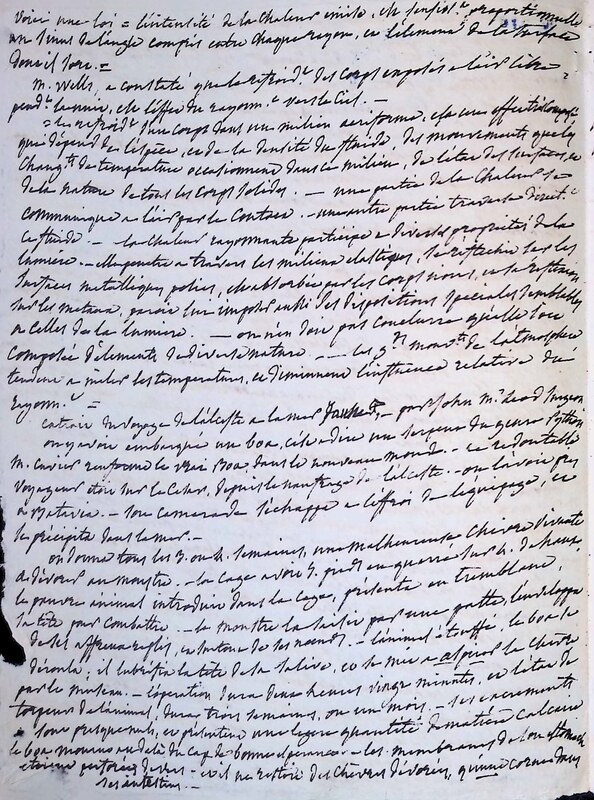 Voici une loi = l'intensité de la chaleur émise, est sensibt. proportionnelle
au sinus de l'angle compris entre chaque rayon, et l'élément de la surface
dont il sort. =
M. Wells, a constaté que le refroidt. des corps exposés à l'air libre
pendt. la nuit, est l'effet du rayonnt. vers le Ciel. —
= le refroidt. d'un corps dans un milieu aériforme, est un effet composé
qui dépend de l'espèce, et de la densité du fluide, des mouvements que les
changts. de température occasionnent dans le milieu, de l'état des surfaces, et
de la nature de tous les corps solides. — une partie de la chaleur se
communique à l'air par le contact. — une autre partie traverse directt.
le fluide. — la chaleur rayonnante participe à diverses propriétés de la
lumière. — elle pénètre à travers les milieux élastiques, se réfléchit sur les
surfaces métalliques polies, est absorbée par les corps noirs, et la réflexion
sur les métaux, paroit lui imposer aussi des dispositions spéciales semblables
à celles de la lumière. — on n'en doit pas conclure qu'elle soit
composée d'éléments de diverse nature. — les gds. mouvts. de l'atmosphère
tendent à mêler les températures, et diminuent l'influence relative du
rayonnt. =
extrait du voyage de l'alceste à la mer Jaune, — par John Mc. Leod Surgeon
on y avoit embarqué un boa, c'est à dire un serpent du genre Python
M. Cuvier renferme le vrai Boa, dans le nouveau monde. — ce redoutable
voyageur étoit sur le César, depuis le naufrage de l'alceste. — on l'avoit pris
à Batavia. — son camarade s'échappa à l'effroi de l'équipage, et
se précipita dans la mer. —
on donne tous les 3. ou 4. semaines, une malheureuse chèvre vivante
à dévorer au monstre. — la cage avoit pieds en quarré sur 4. de haut.
le pauvre animal introduit dans la cage, présente en tremblant,
sa tête pour combattre. — le monstre la saisit par une patte, l'enveloppa
de ses affreux replis, en autant de ses noeuds. — l'animal étouffé, le boa se
déroula; il lubréfia la tête de sa salive, et se mit à aspirer la chèvre
par le museau. — l'opération dura deux heures vingt minutes, et l'état de
torpeur de l'animal, dura trois semaines, ou un mois. — ses excréments
sont presque nuls, et présentent une légère quantité de matière calcaire
le boa mourut au delà du Cap de bonne espérance — les membranes de son estomach
étoient perforées de vers — et il ne restoit des chèvres dévorées, qu'une corne dans
ses intestins. —